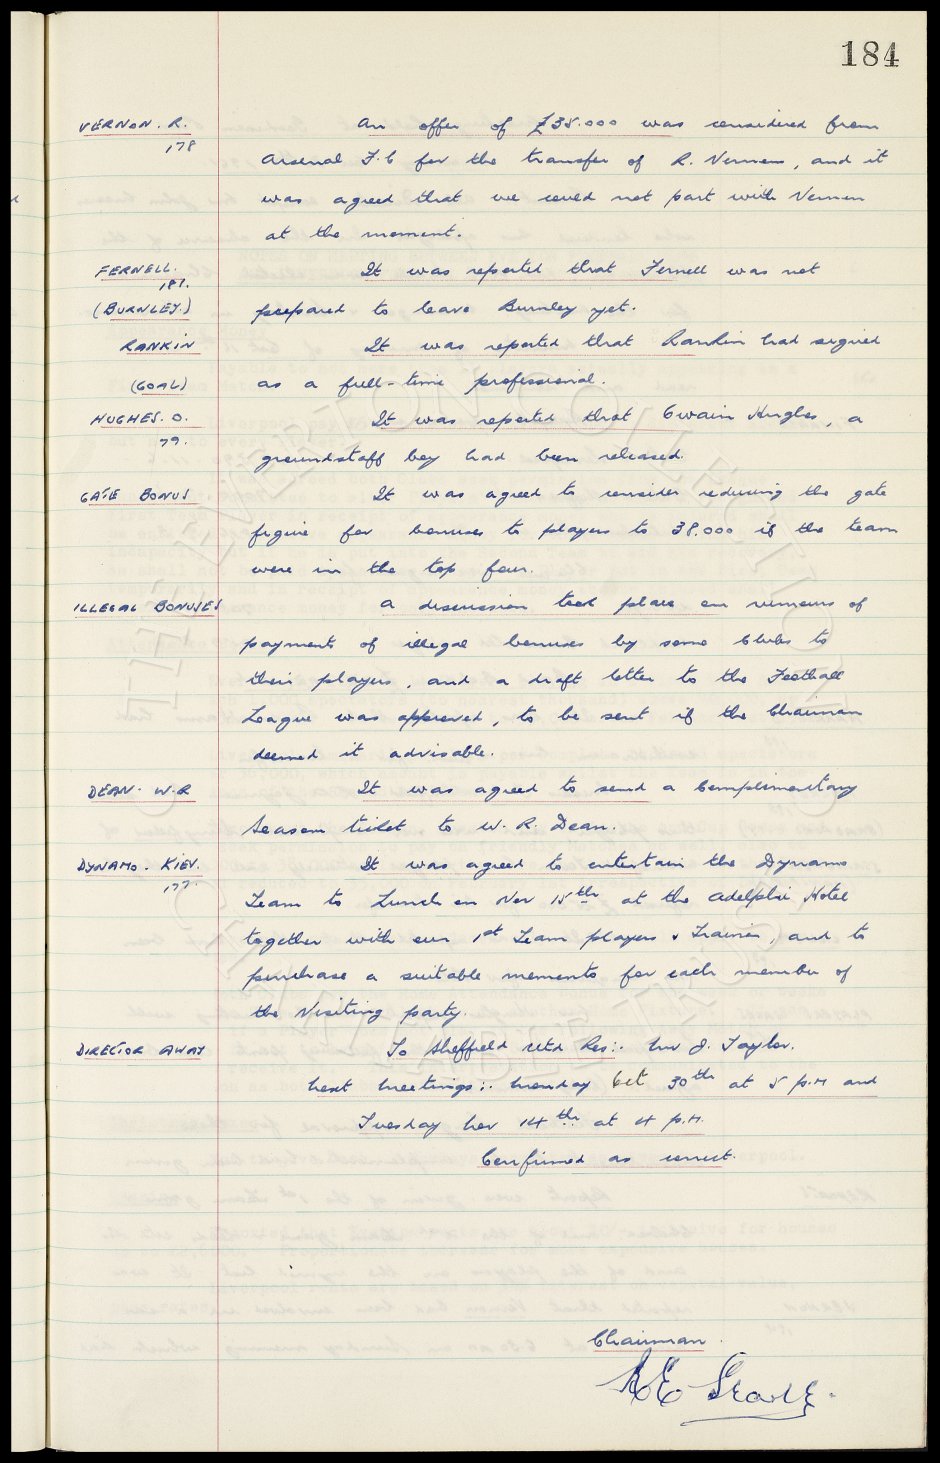 184
VERNON. R. An offer of £35.000 was considered from
178 Arsenal F.C for the transfer of R. Vernon, and it
was agreed that we could not part with Vernon
at the moment.
FERNELL. It was reported that Fernell was not
181.
(BURNLEY.) prepared to leave Burnley yet.
RANKIN It was reported that Rankin had signed
(GOAL) as a full-time professional.
HUGHES. O. It was reported that Owain Hughes, a
79. groundstaff boy had been released.
GATE BONUS It was agreed to consider reducing the gate
figure for bonuses to players to 38.000 if the team
were in the top four.
ILLEGAL BONUSES A discussion took place on rumours of
payments of illegal bonuses by some Clubs to
their players, and a draft letter to the Football
League was approved, to be sent if the Chairman
deemed it advisable.
DEAN. W.R It was agreed to send a Complimentary
Season ticket to W. R. Dean.
DYNAMO. KIEV. It was agreed to entertain the Dynamo
177. Team to Lunch on Nov 15th at the Adelphi Hotel
together with our 1st Team players & Trainer, and to
purchase a suitable memento for each member of
the Visiting party.
DIRECTOR AWAY To Sheffield Utd Res:. Mr J. Taylor.
Next Meetings:. Monday Oct 30th at 5 p.m and
Tuesday Nov 14th. at 4 p.m.
Confirmed as correct.
Chairman.